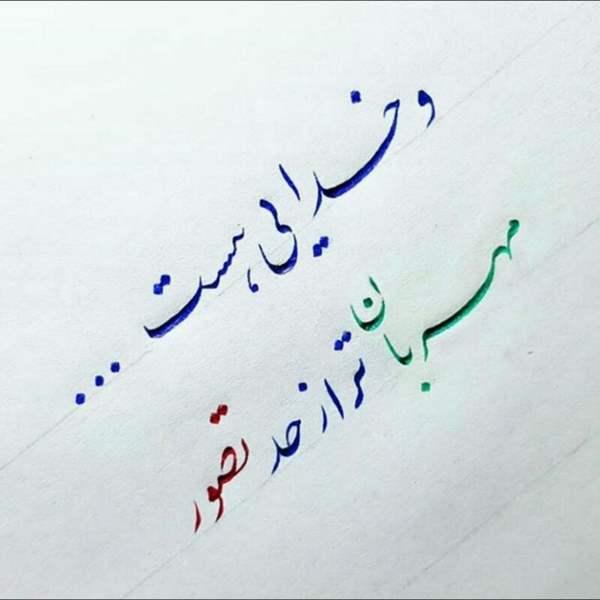 و خدایی هست ...
مهربان تر از حد تصور